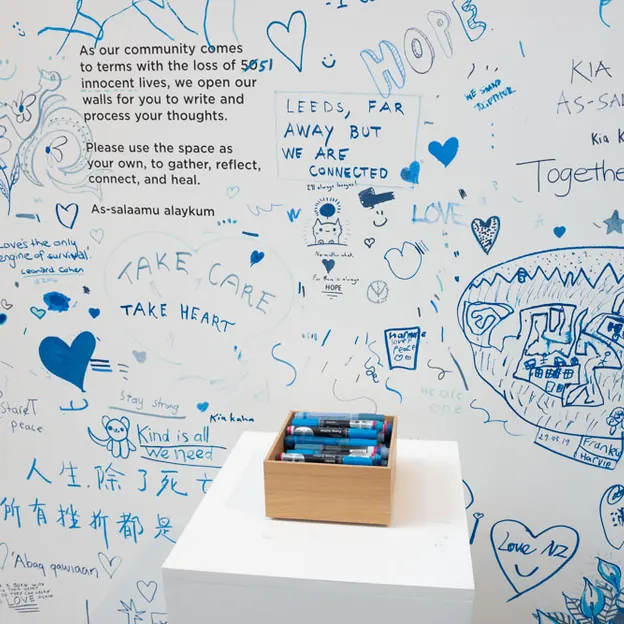 As our community comes
to terms with the loss of 5051
innocent lives, we open our
walls for you to write and
process your thoughts.
Please use the space as
your own, to gather, reflect,
connect, and heal.
As-salaamu alaykum
HOPE
WE STAND
TOGETHER
KIA
AS-SAL
Kia K
Togethe
LEEDS, FAR
AWAY BUT
WE ARE
CONNECTED
LOVE
Love's the only
engine of survival'
Leonard Cohen
TAKE CARE
TAKE HEART
No matter what
For there is always
HOPE
love
peace
we are
one
Stay strong
Kia kaha
peace
Kind is all
we need
人生.除了死亡
所有挫折都是
'Abaq qawiaan
LOVE
29.05.19
Franky
Harvie
Love NZ